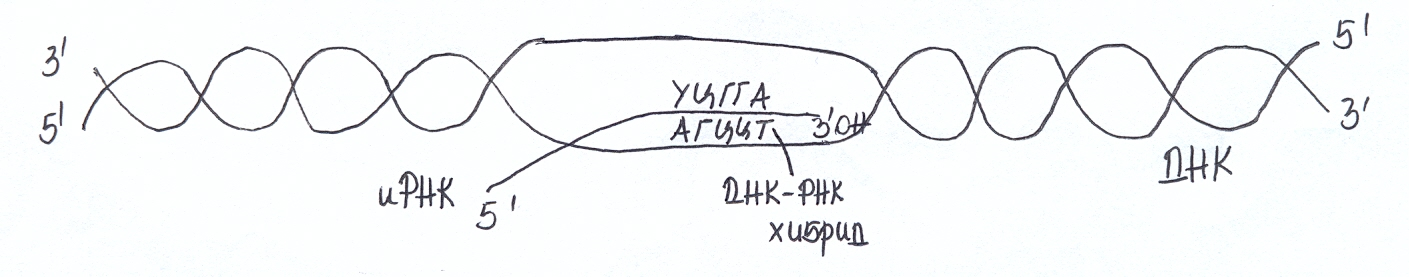 3'
5'
5'
3'
УЦГГА
АГЦЦТ
3'ОН
иРНК
5'
ДНК-РНК
хибрид
ДНК